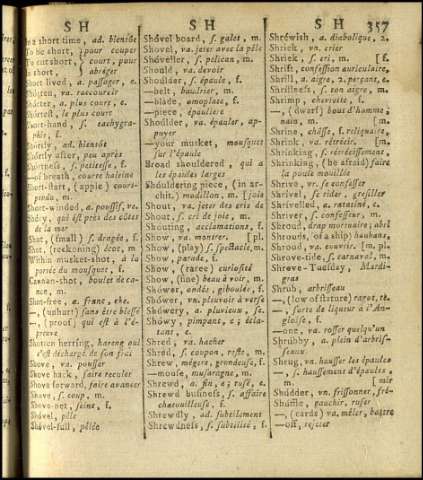 S H
S H
S H
357
In a short time, ad. bientôt
To be short, pour couper
To cut short, court, pour
In short, abréger
Short lived, a. passager, e.
Shorten, va. raccourcir
Shorter, a. plus court, e.
Shortest, le plus court
Short-hand, s. tachygra-
phie, f.
Shortly, ad. bientôt
Shortly after, peu après
Shortness, s. petitesse, f.
—of breath, courte haleine
Short-start, (apple) court-
pendu, m.
Short-winded, a. poussif, ve.
Shory, qui est près des côtes
de la mer
Shot, (small) s. dragée, f.
Shot, (reckoning) écot, m
Within musket-shot, à la
portée du mousquet, f.
Cannon-shot, boulet de ca-
non, m.
Shot-free, a. franc, che.
—, (unhurt) sans être blessé
—, (proof) qui est à l'é-
preuve
Shotten herring, hareng qui
s'est déchargé de son frai
Shove, va. pousser
Shove back, faire reculer
Shove forward, faire avancer
Shove, s. coup, m.
Shove-net, seine, f.
Shovel, pêle
Shovel-full, pêlée
Shovel board, s. galet, m.
Shovel, va. jeter avec la pêle
Shoveller, s. pelican, m.
Should, va. devoir
Shoulder, s. épaule, f.
—belt, baudrier, m.
—blade, omoplate, f.
—piece, épaulette, f.
Shoulder, va. épauler, ap-
puyer
—your musket, mousquet
sur l'épaule
Broad shouldered, qui a
les épaules larges
Shouldering piece, (in ar-
chit.) modillon, m. [joie
Shout, va. jeter des cris de
Shout, s. cri de joie, m.
Shouting, acclamations, f.
Show, va. montrer. [pl.
Show, (play) s. spectacle, m.
Show, parade, f.
Show, (raree) curiosité
Show, (fine) beau à voir, m.
Shower, ondée, giboulée, f.
Shower, va. pleuvoir à verse
Showery, a. pluvieux, se.
Showy, pimpant, e; écla-
tant, e.
Shred, va. hacher
Shred, s. coupon, reste, m.
Shrew, mégere, grondeuse, f.
—mouse, musaragne, m.
Shrewd, a. fin, e; rusé, e.
Shrewd business, s. affaire
chatouilleuse, f.
Shrewdly, ad. subtilement
Shrewdness, s. subtilité, f.
Shrewish, a. diabolique, 2.
Shriek, vn. crier
Shriek, s. cri, m. [f.
Shrift, confession auriculaire,
Shrill, a. aigre, 2. perçant, e.
Shrillness, s. son aigre, m.
Shrimp, chevrette, f.
—, (dwarf) bout d'homme,
nain, m. [m.
Shrine, châsse, f. reliquaire,
Shrink, va. rétrécir. [m.
Shrinking, s. rétrécissement,
Shrinking, (be afraid) faire
la poule mouillée
Shrive, vr. se confesser
Shrivel, se rider, gresiller
Shrivelled, a. ratatiné, e.
Shriver, s. confesseur, m.
Shroud, drap mortuaire; abri
Shrouds, of a ship) haubans,
Shroud, va. couvrir. [m. pl.
Shrove-tide, s. carnaval, m.
Shrove-Tuesday, Mardi-
gras
Shrub, arbrisseau
—, (low of stature) ragot, te.
—, sorte de liqueur à l'An-
gloise, f.
—one, va. rosser quelqu'un
Shrubby, a. plein d'arbris-
seaux
Shrug, va. hausser les épaules
—, s. haussement d'épaules,
m. [mir
Shudder, vn. frissonner, fré-
Shuffle, gauchir, ruser
—, (cards) va. mêler, battre
—off, rejeter